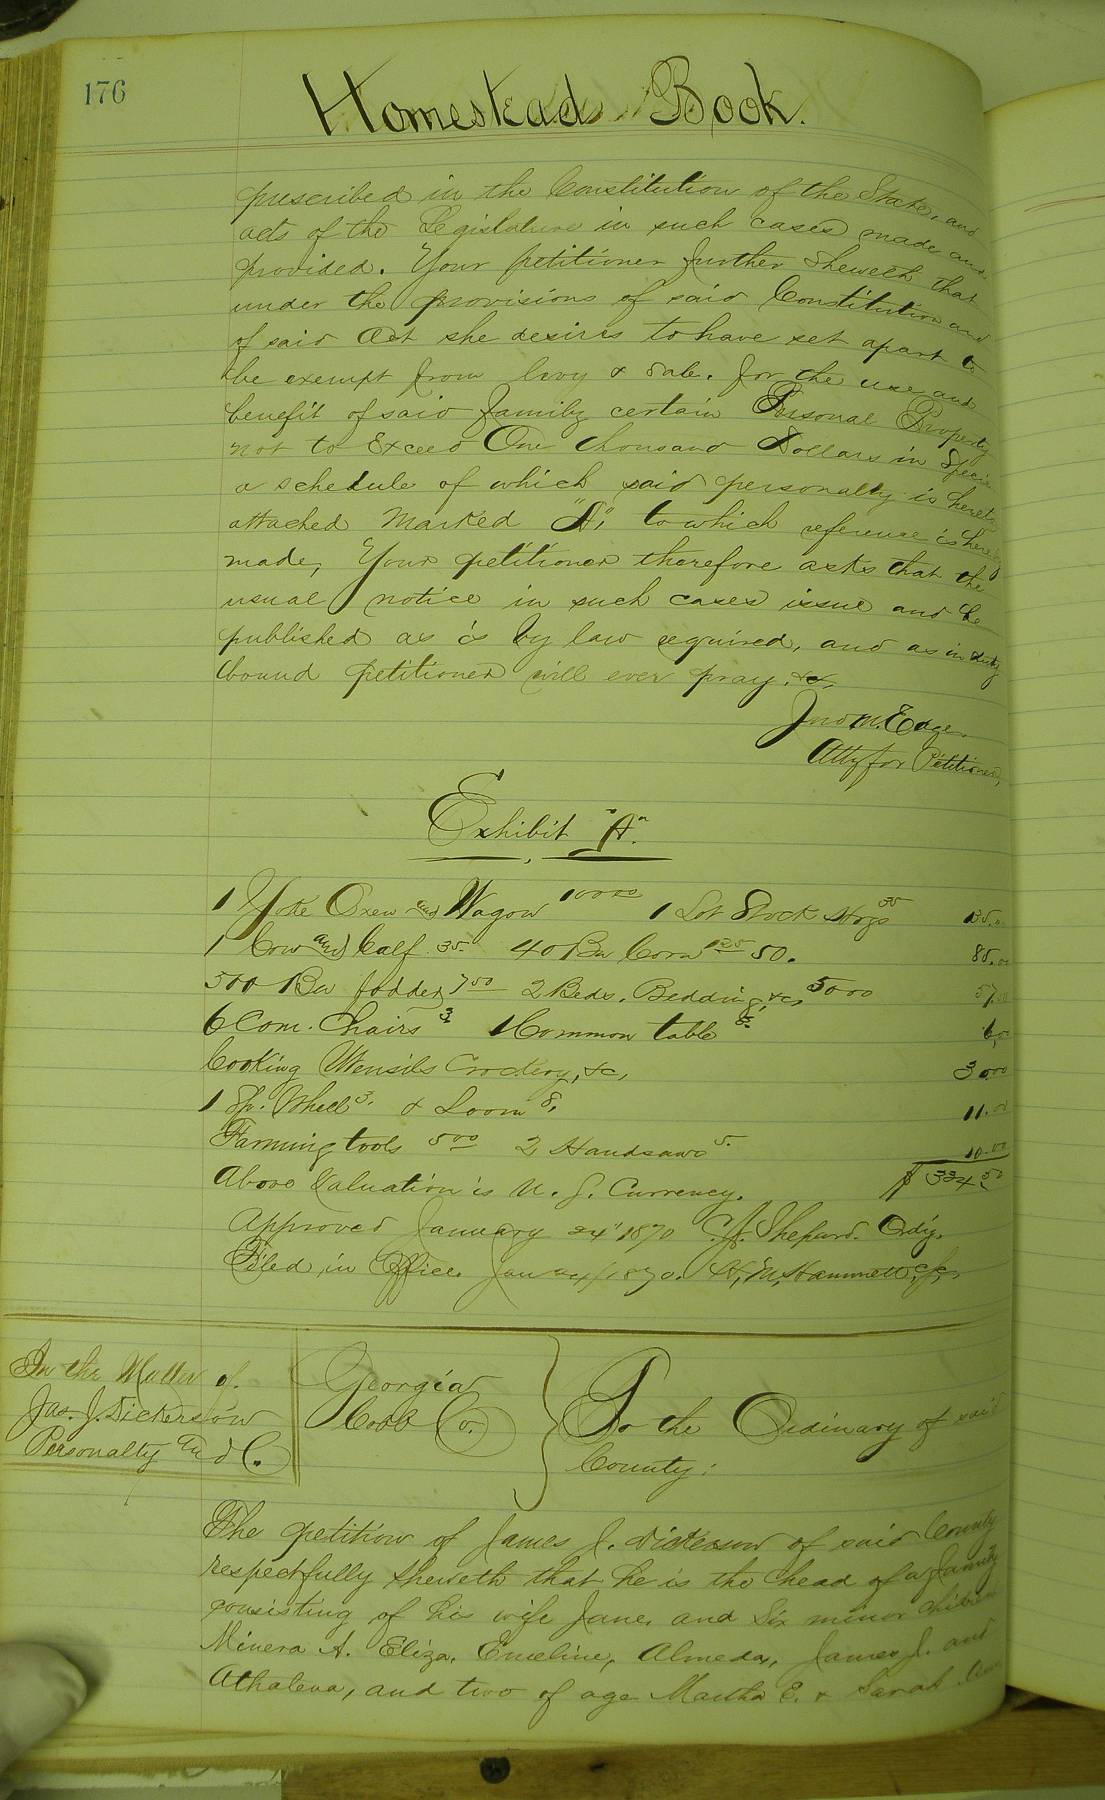 176
Homestead Book.
prescribed in the Constitution of the State, and
acts of the Legislature in such cases made and
provided. Your petitioner further sheweth that
under the provisions of said Constitution and
of said Act she desires to have set apart to
be exempt from levy & sale. for the use and
benefit of said family certain Personal Property
not to Exceed One thousand Dollars in Specie
a schedule of which said personalty is hereto
attached marked "A," to which reference is hereby
made, Your petitioner therefore asks that the
usual notice in such cases issue and be
published as is by law required, and as in duty
bound petitioner will ever pray, &c.
Jno M. Edge.
Atty for Petitioner,
Exhibit "A".
1 Yoke Oxen and Wagon 100 00 1 Lot Stock Hogs 35 135.00
1 Cow and Calf 35. 40 Bu Corn 1 25 50. 85.00
500 Bu fodder 7 50 2 Beds. Bedding, &c, 50 00 57.50
6 Com. Chairs 3. 1 Common table 6.00
Cooking Utensils Crockery, &c, 30.00
1 Sp. Wheel 3. & Loom 8. 11.00
Farming tools 5 00 2 Handsaws 5. 10.00
Above Valuation is U. S. Currency. $ 334.50
Approved January 24" 1870 C. A. Shepard. Ordy.
Filed in Office. Jan 24/1870. H. M. Hammett, c.s.c.
In the Matter of
Jas. J. Dickerson
Personalty and C.
Georgia
Cobb Co.
To the Ordinary of said
County:
The petition of James J. Dickerson of said County
respectfully sheweth that he is the head of a family
consisting of his wife Jane, and Six minor children
Minera A. Eliza, Emeline, Almeda, James J. and
Athalena, and two of age Martha E. & Sarah Ann